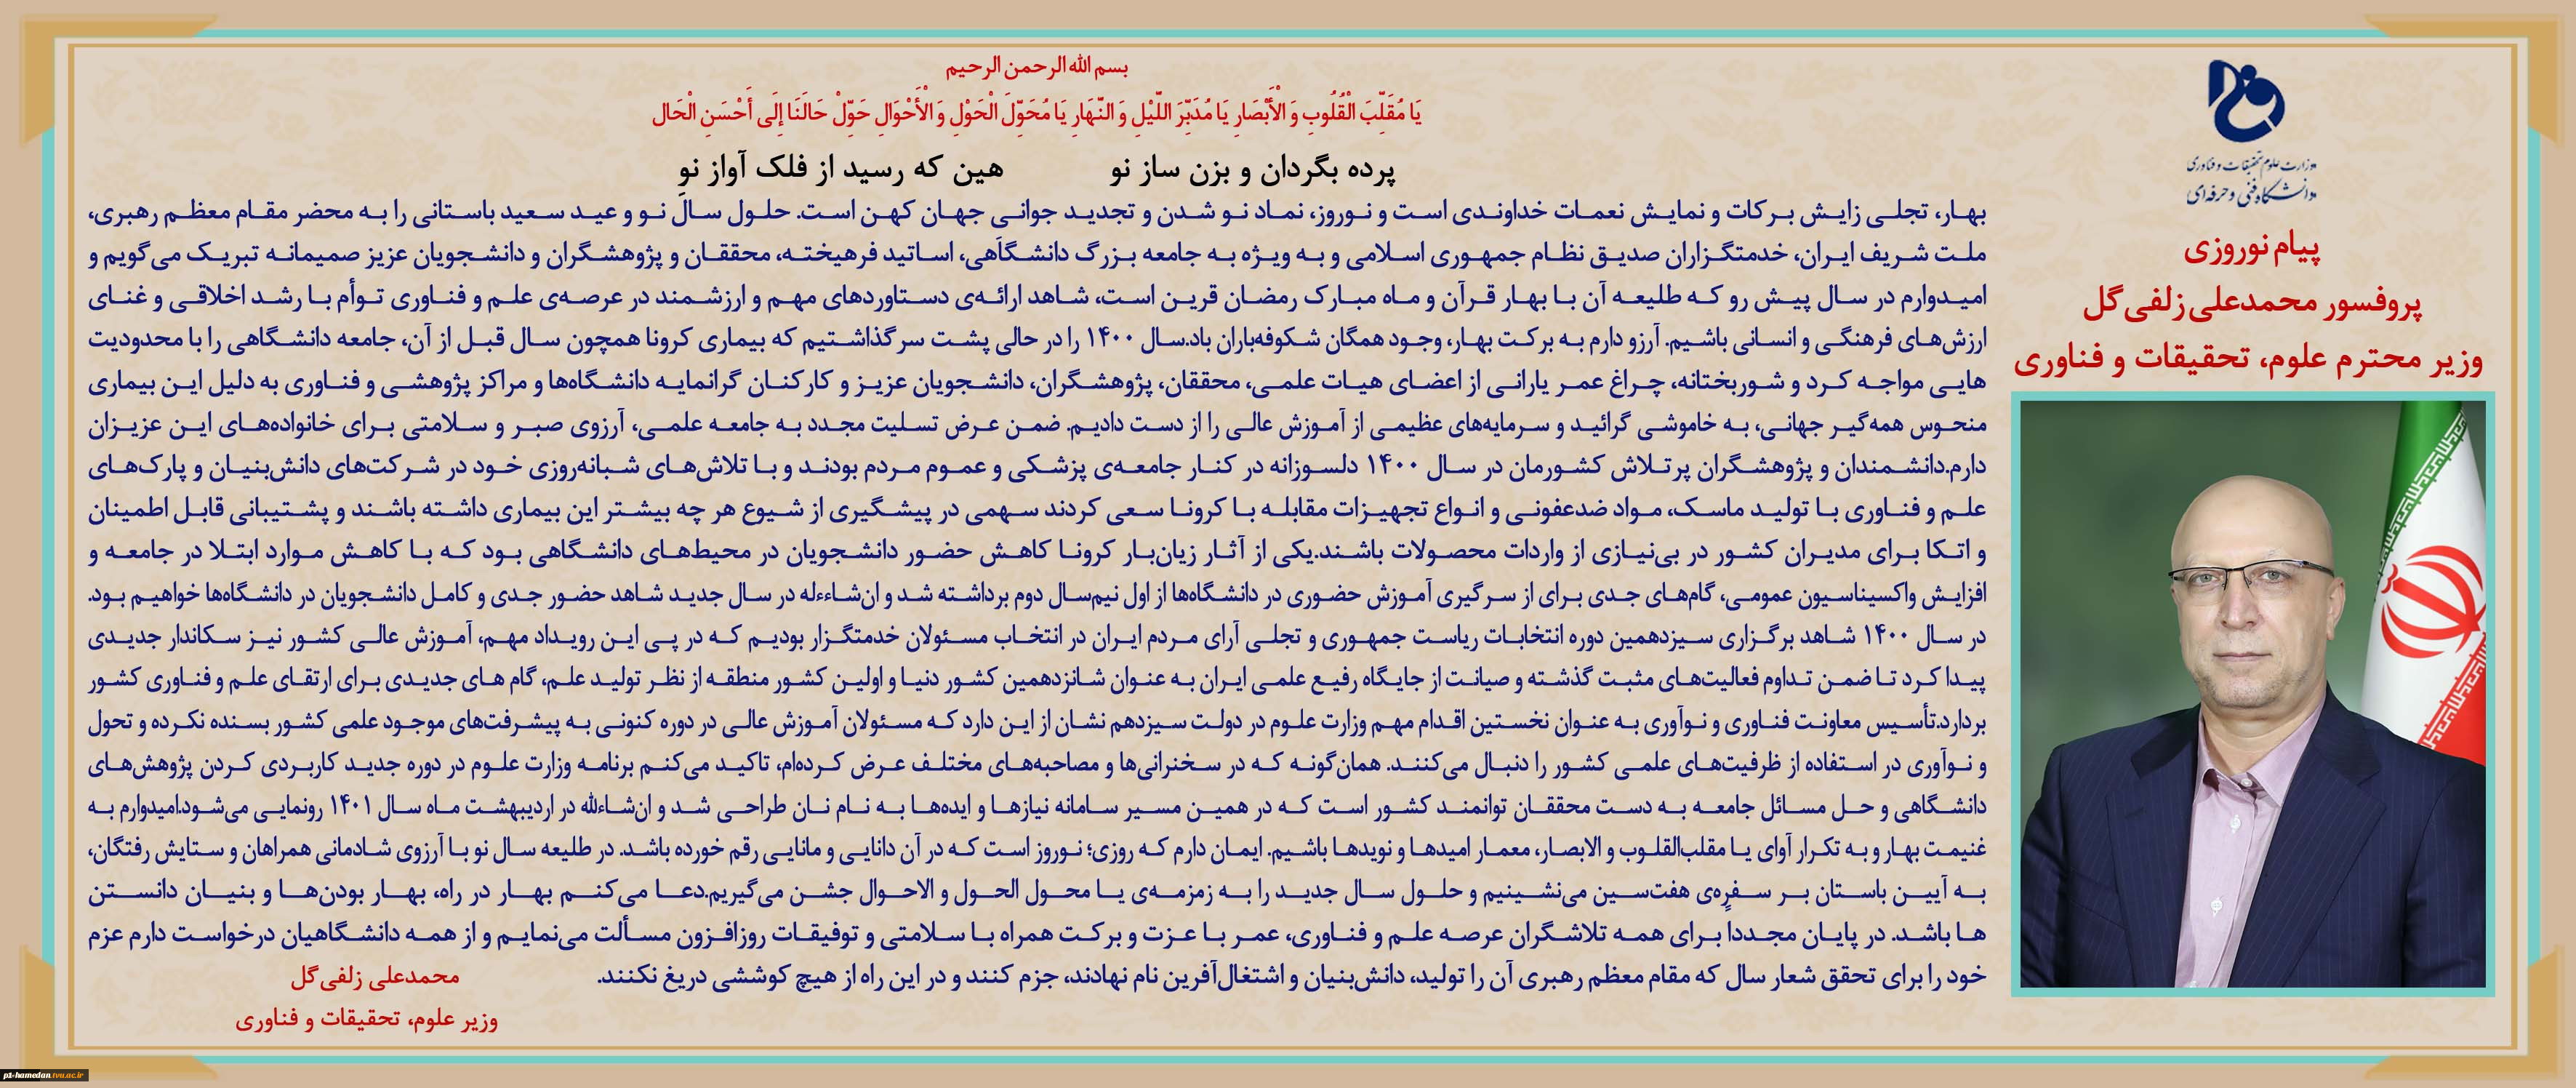 بسم الله الرحمن الرحیم
یَا مُقَلِّبَ الْقُلُوبِ وَ الْأَبْصَارِ یَا مُدَبِّرَ اللَّیْلِ وَ النَّهَارِ یَا مُحَوِّلَ الْحَوْلِ وَ الْأَحْوَالِ حَوِّلْ حَالَنَا إِلَی أَحْسَنِ الْحَال
پرده بگردان و بزن ساز نو هین که رسید از فلک آواز نو
بهار، تجلی زایش برکات و نمایش نعمات خداوندی است و نوروز، نماد نو شدن و تجدید جوانی جهان کهن است. حلول سال نو و عید سعید باستانی را به محضر مقام معظم رهبری،
ملت شریف ایران، خدمتگزاران صدیق نظام جمهوری اسلامی و به ویژه به جامعه بزرگ دانشگاهی، اساتید فرهیخته، محققان و پژوهشگران و دانشجویان عزیز صمیمانه تبریک می‌گویم و
امیدوارم در سال پیش رو که طلیعه آن با بهار قرآن و ماه مبارک رمضان قرین است، شاهد ارائه‌ی دستاوردهای مهم و ارزشمند در عرصه‌ی علم و فناوری توأم با رشد اخلاقی و غنای
ارزش‌های فرهنگی و انسانی باشیم. آرزو دارم به برکت بهار، وجود همگان شکوفه‌باران باد.سال ۱۴۰۰ را در حالی پشت سر گذاشتیم که بیماری کرونا همچون سال قبل از آن، جامعه دانشگاهی را با محدودیت
هایی مواجه کرد و شوربختانه، چراغ عمر یارانی از اعضای هیات علمی، محققان، پژوهشگران، دانشجویان عزیز و کارکنان گرانمایه دانشگاه‌ها و مراکز پژوهشی و فناوری به دلیل این بیماری
منحوس همه‌گیر جهانی، به خاموشی گرائید و سرمایه‌های عظیمی از آموزش عالی را از دست دادیم. ضمن عرض تسلیت مجدد به جامعه علمی، آرزوی صبر و سلامتی برای خانواده‌های این عزیزان
دارم.دانشمندان و پژوهشگران پرتلاش کشورمان در سال ۱۴۰۰ دلسوزانه در کنار جامعه‌ی پزشکی و عموم مردم بودند و با تلاش‌های شبانه‌روزی خود در شرکت‌های دانش‌بنیان و پارک‌های
علم و فناوری با تولید ماسک، مواد ضدعفونی و انواع تجهیزات مقابله با کرونا سعی کردند سهمی در پیشگیری از شیوع هر چه بیشتر این بیماری داشته باشند و پشتیبانی قابل اطمینان
و اتکا برای مدیران کشور در بی‌نیازی از واردات محصولات باشند.یکی از آثار زیان‌بار کرونا کاهش حضور دانشجویان در محیط‌های دانشگاهی بود که با کاهش موارد ابتلا در جامعه و
افزایش واکسیناسیون عمومی، گام‌های جدی برای از سرگیری آموزش حضوری در دانشگاه‌ها از اول نیم‌سال دوم برداشته شد و ان‌شاءءله در سال جدید شاهد حضور جدی و کامل دانشجویان در دانشگاه‌ها خواهیم بود.
در سال ۱۴۰۰ شاهد برگزاری سیزدهمین دوره انتخابات ریاست جمهوری و تجلی آرای مردم ایران در انتخاب مسئولان خدمتگزار بودیم که در پی این رویداد مهم، آموزش عالی کشور نیز سکاندار جدیدی
پیدا کرد تا ضمن تداوم فعالیت‌های مثبت گذشته و صیانت از جایگاه رفیع علمی ایران به عنوان شانزدهمین کشور دنیا و اولین کشور منطقه از نظر تولید علم، گام های جدیدی برای ارتقای علم و فناوری کشور
بردارد.تأسیس معاونت فناوری و نوآوری به عنوان نخستین اقدام مهم وزارت علوم در دولت سیزدهم نشان از این دارد که مسئولان آموزش عالی در دوره کنونی به پیشرفت‌های موجود علمی کشور بسنده نکرده و تحول
و نوآوری در استفاده از ظرفیت‌های علمی کشور را دنبال می‌کنند. همان‌گونه که در سخنرانی‌ها و مصاحبه‌های مختلف عرض کرده‌ام، تاکید می‌کنم برنامه وزارت علوم در دوره جدید کاربردی کردن پژوهش‌های
دانشگاهی و حل مسائل جامعه به دست محققان توانمند کشور است که در همین مسیر سامانه نیازها و ایده‌ها به نام نان طراحی شد و ان‌شاءالله در اردیبهشت ماه سال ۱۴۰۱ رونمایی می‌شود.امیدوارم به
غنیمت بهار و به تکرار آوای یا مقلب‌القلوب و الابصار، معمار امیدها و نویدها باشیم. ایمان دارم که روزی؛ نوروز است که در آن دانایی و مانایی رقم خورده باشد. در طلیعه سال نو با آرزوی شادمانی همراهان و ستایش رفتگان،
به آیین باستان بر سفره‌ی هفت‌سین می‌نشینیم و حلول سال جدید را به زمزمه‌ی یا محول الحول و الاحوال جشن می‌گیریم.دعا می‌کنم بهار در راه، بهار بودن‌ها و بنیان دانستن
ها باشد. در پایان مجدداً برای همه تلاشگران عرصه علم و فناوری، عمر با عزت و برکت همراه با سلامتی و توفیقات روزافزون مسألت می‌نمایم و از همه دانشگاهیان درخواست دارم عزم
خود را برای تحقق شعار سال که مقام معظم رهبری آن را تولید، دانش‌بنیان و اشتغال‌آفرین نام نهادند، جزم کنند و در این راه از هیچ کوششی دریغ نکنند.
محمدعلی زلفی‌گل
وزیر علوم، تحقیقات و فناوری
وزارت علوم تحقیقات و فناوری
دانشگاه فنی و حرفه‌ای
پیام نوروزی
پروفسور محمدعلی زلفی‌گل
وزیر محترم علوم، تحقیقات و فناوری
p1-hamedan.tvu.ac.ir